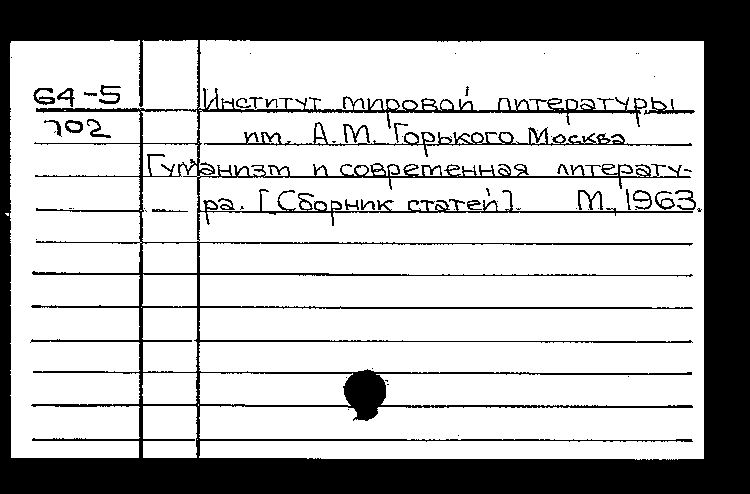 64-5
702
Институт мировой литературы
им. А.М. Горького. Москва
Гуманизм и современная литерату-
ра. [Сборник статей]. М., 1963.